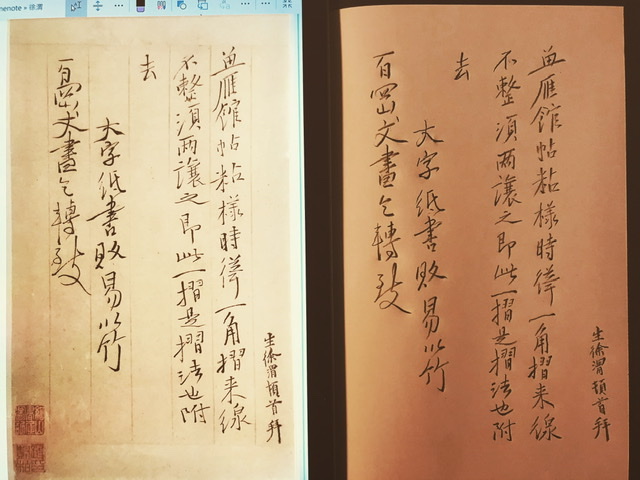 menote » 徐渭
生徐渭頓首拜
雁館帖粘樣時一角摺来線
不整須兩讓之即此一摺是摺法也附
去
大字紙書敗易以竹
百丈畫乞轉致
生徐渭頓首拜
雁館帖粘樣時一角摺来線
不整須兩讓之即此一摺是摺法也附
去
大字紙書敗易以竹
百丈畫乞轉致